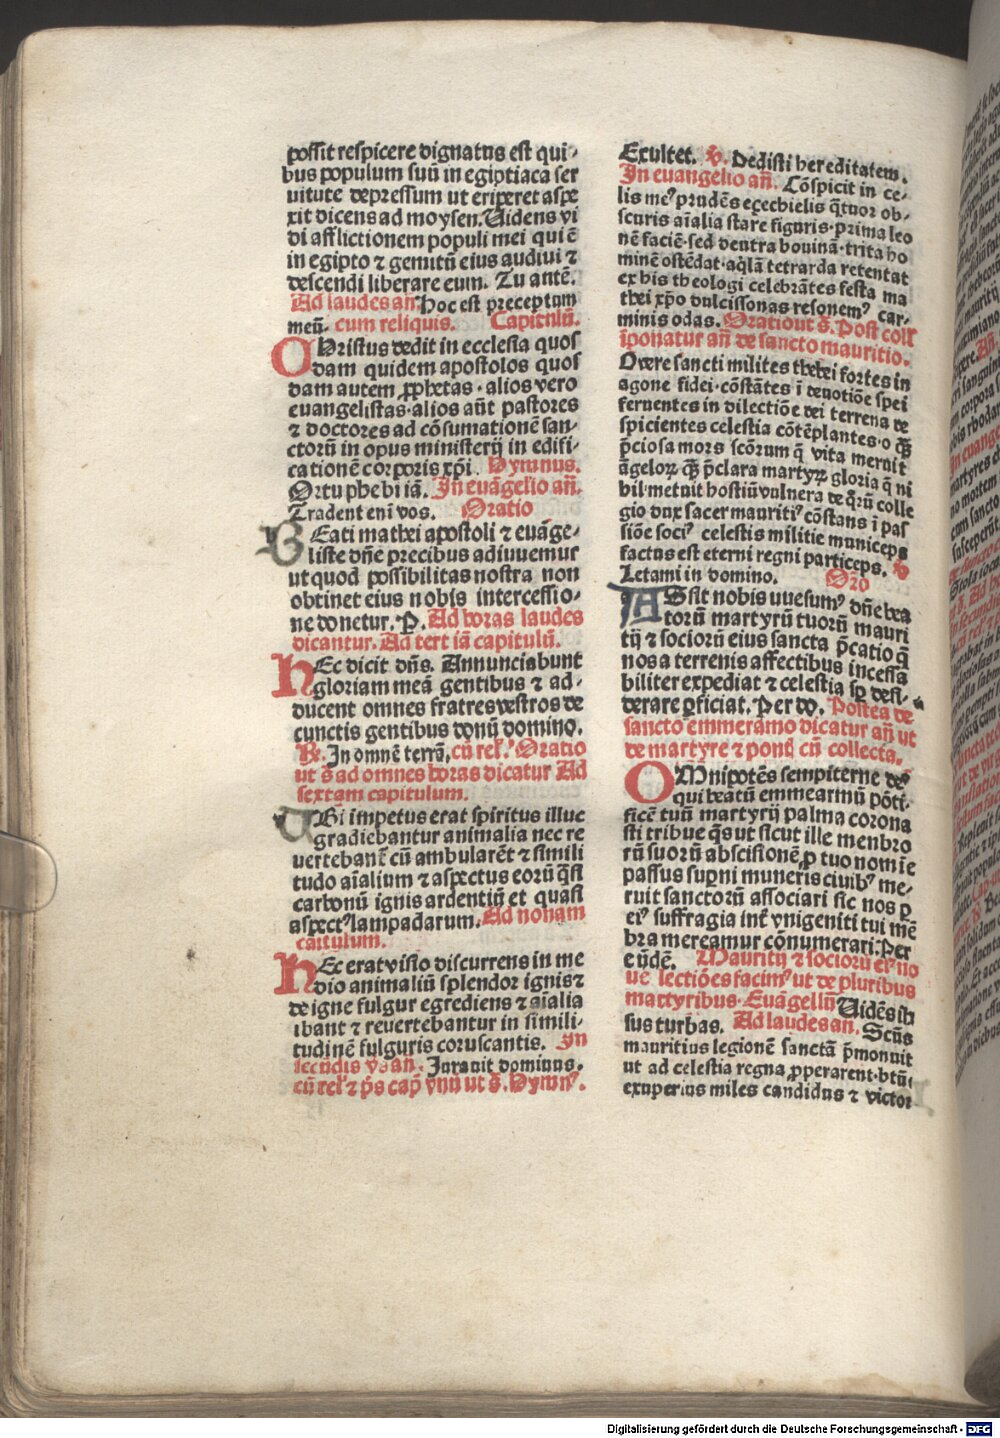 possit respicere dignatus est qui-
bus populum suū in egiptiaca ser
uitute depressum ut eriperet aspe
xit dicens ad moysen. Uidens vi
di afflictionem populi mei qui ē
in egipto ⁊ gemitū eius audiui ⁊
descendi liberare eum. Tu antē.
Ad laudes añ. Hoc est preceptum
meū. cum reliquis. Capitulū.
CHristus dedit in ecclesia quos
dam quidem apostolos quos
dam autem ꝓphetas · alios vero
euangelistas · alios aūt pastores
⁊ doctores ad cōsumationē san-
ctorū in opus ministerij in edifi-
cationē corporis xp̄i. Hymnus.
Ortu phebi iā. In euāgelio añ.
Tradent enī vos. Oratio
BEati mathei apostoli ⁊ euāge-
liste dn̄e precibus adiuuemur
ut quod possibilitas nostra non
obtinet eius nobis intercessio-
ne donetur. P. Ad horas laudes
dicantur. Ad tertiā capitulū.
HEc dicit dn̄s. Annunciabunt
gloriam meā gentibus ⁊ ad-
ducent omnes fratres vestros de
cunctis gentibus donū domino.
℞. In omnē terrā. cū rel'. Oratio
ut s̄ ad omnes horas dicatur Ad
sextam capitulum.
UBi impetus erat spiritus illuc
gradiebantur animalia nec re
uertebant̄ cū ambularēt ⁊ simili
tudo aīalium ⁊ aspectus eorū q̄si
carbonū ignis ardentiū et quasi
aspectꝰ lampadarum. Ad nonam
capitulum.
HEc erat visio discurrens in me
dio animaliū splendor ignis ⁊
de igne fulgur egrediens ⁊ aīalia
ibant ⁊ reuertebantur in simili-
tudinē fulguris coruscantis. In
secundis añ. Iurauit dominus.
cū rel' ⁊ p̄s cap̄ vnū ut s̄. Hymnꝰ.
Exultet. ℣. Dedisti hereditatem.
In euangelio añ. Cōspicit in ce-
lis meꝰ prudēs eçechielis q̄tuor ob-
scuris aīalia stare figuris · prima leo
nē faciē · sed dentra bouinā · trita ho
minē ostēdat · aq̄lā tetrarda retentat
ex his theologi celebrātes festa ma
thei xp̄o dulcissonas resonemꝰ car-
minis odas. Oratio ut s̄. Post coll'
īponatur añ de sancto mauritio.
O vere sancti milites thebei fortes in
agone fidei · cōstātes ī deuotiōe spei
feruentes in dilectiōe dei terrena de
spicientes celestia cōtēplantes · o q̄ꝫ
p̄ciosa mors scōrum q̄ vita meruit
āgeloꝝ q̄ꝫ p̄clara martyꝝ gloria q̄ ni
hil metuit hostiū vulnera de q̄rū colle
gio dux sacer mauritiꝰ cōstans ī pas
siōe sociꝰ celestis militie municeps
factus est eterni regni particeps. ℣
Letami in domino. Oro
ASsit nobis uuesumꝰ dn̄e bea
torū martyrū tuorū mauri
tij ⁊ sociorū eius sancta p̄catio q̄
nos a terrenis affectibus incessa
biliter expediat ⁊ celestia sꝑ desi-
derare ꝑficiat. Per do. Postea de
sancto emmeramo dicatur añ ut
de martyre ⁊ pont̄ cū collecta.
OMnipotēs sempiterne deꝰ
qui beatū emmearmū pōti-
ficē tuū martyrij palma corona
sti tribue q̄s ut sicut ille menbro
rū suorū abscisionē ꝓ tuo nomīe
passus suꝑni muneris ciuibꝰ me-
ruit sanctorū associari sic nos ꝑ
eiꝰ suffragia int̄ vnigeniti tui mē
bra mereamur cōnumerari: Per
eūdē. Mauritij ⁊ sociorū eiꝰ no
ue lectiōes facimꝰ ut de pluribus
martyribus · Euāgeliū Uidēs ih
sus turbas. Ad laudes añ. Scūs
mauritius legionē sanctā p̄monuit
ut ad celestia regna ꝓperarent · btūi
exuperius miles candidus ⁊ victor
Digitalisierung gefördert durch die Deutsche Forschungsgemeinschaft - DFG